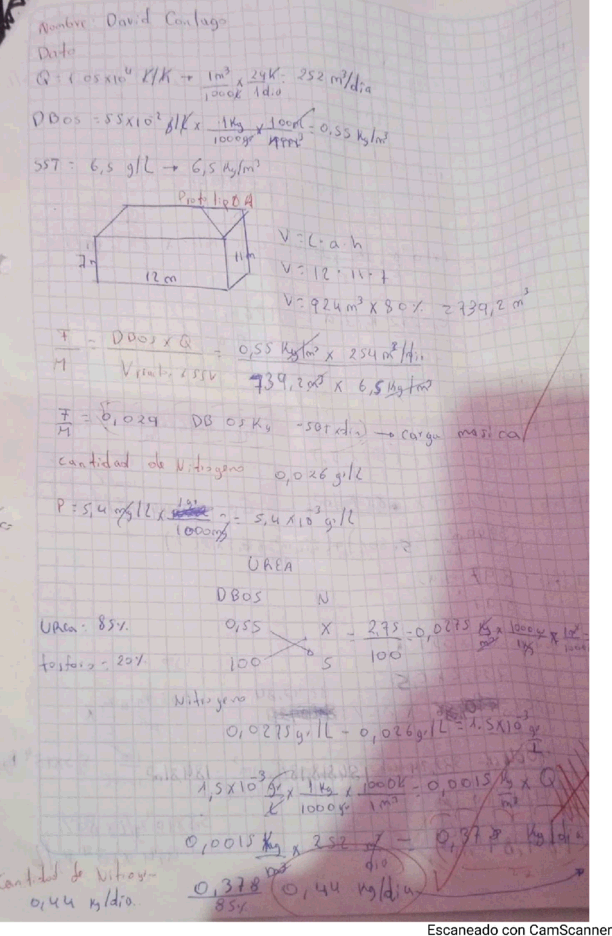 Nombre David Contago
Dato
Q = 1.05x10⁴ l/h → 1m³/1000l x 24h/1dia = 252 m³/dia
DBO5 = 55x10² g/l x 1kg/1000gr x = 0,55 Kg/m³
SST = 6,5 g/L → 6,5 Kg/m³
7m
12 m
11m
V = L · a · h
V = 12 · 11 · 7
V = 924 m³ x 80% = 739,2 m³
F/M = DBO5 x Q / = 0,55 Kg/m³ x 254 m³/dia / 739,2 m³ x 6,5 Kg/m³
F/M = 0,029 DBO5 Kg → carga masica
Cantidad de Nitrogeno 0,026 gr/L
P = 5,4 mg/L x 1gr/1000mg = 5,4 x 10⁻³ gr/L
UREA
DBO5 N
Urea = 85% 0,55 X = 2,75/100 = 0,0275 Kg/m³ x 1000gr/1kg x
fosforo = 20% 100 5
Nitrogeno
0,0275 gr/L - 0,026 gr/L = 1.5x10⁻³ gr/L
1,5x10⁻³ gr/L x 1Kg/1000gr x 1000L/1m³ = 0,0015 Kg/m³ x Q
0,0015 Kg/m³ x 252 /dia = 0,378 Kg/dia
Cantidad de Nitrogeno
0,44 kg/dia
0,378/85% 0,44 kg/dia
Escaneado con CamScanner